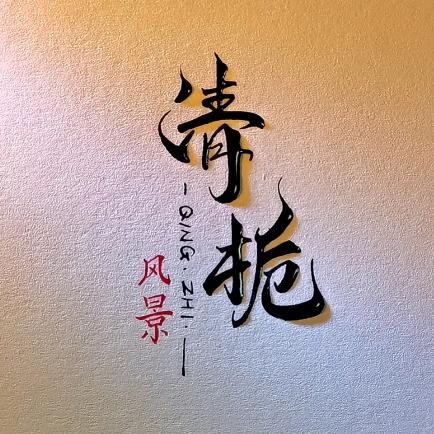 清栀
-QING·ZHI·—
风景